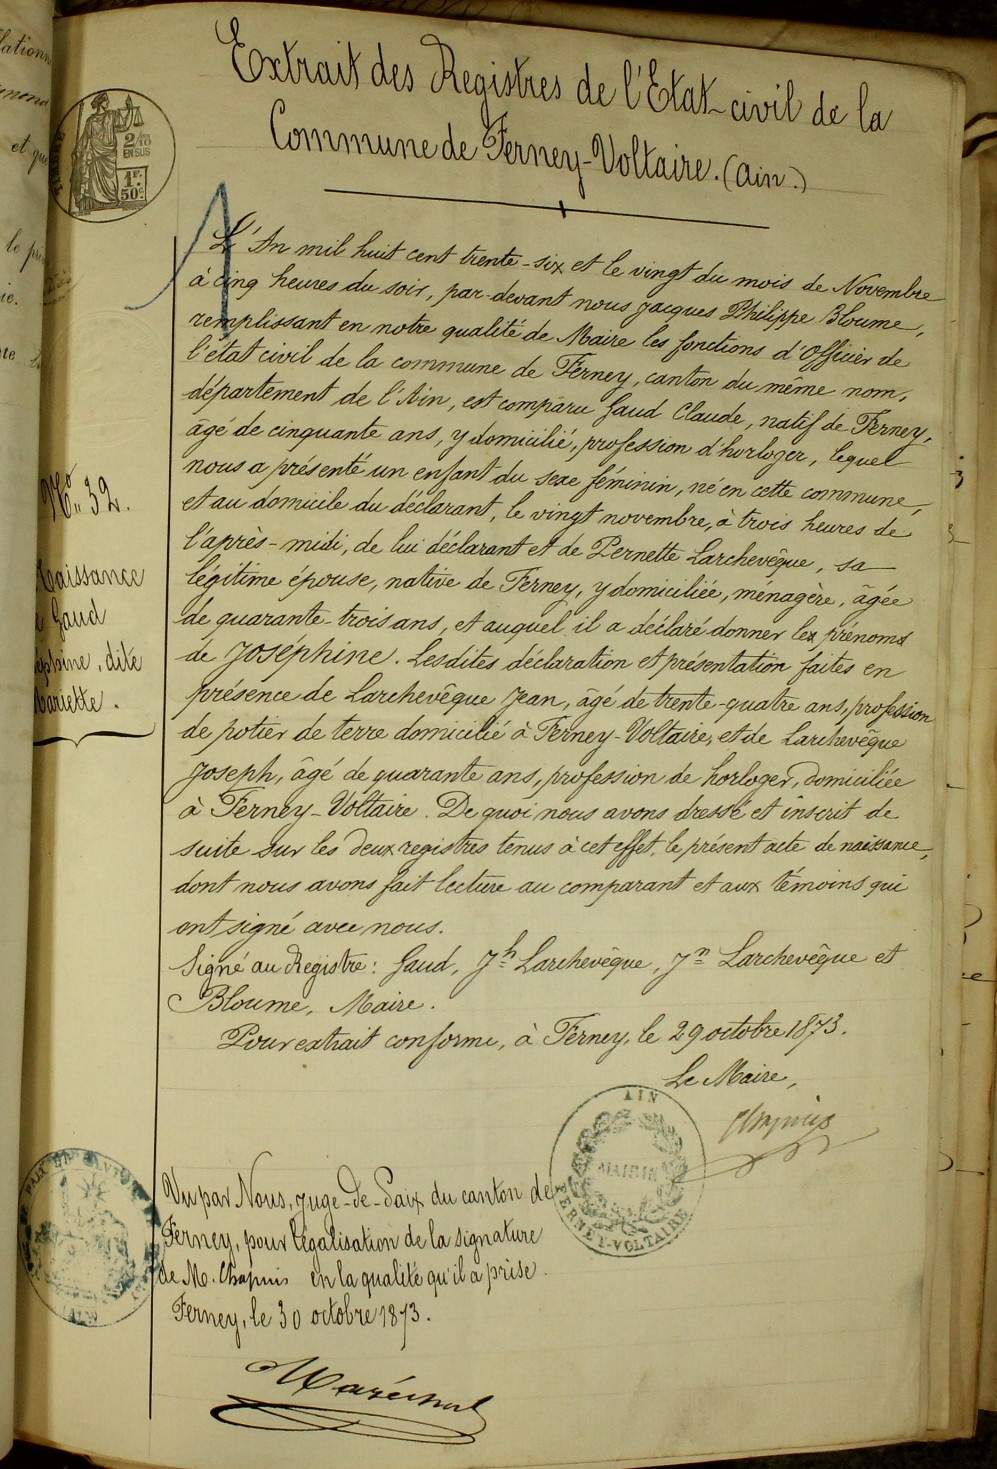 Extrait des Registres de l'Etat-civil de la
Commune de Ferney-Voltaire. (Ain.)
2/10
EN SUS
1F.
50c.
L'An mil huit cent trente-six et le vingt du mois de Novembre
à cinq heures du soir, par-devant nous Jacques Philippe Bloume,
remplissant en notre qualité de Maire les fonctions d'Officier de
l'état civil de la commune de Ferney, canton du même nom,
département de l'Ain, est comparu Gaud Claude, natif de Ferney,
âgé de cinquante ans, y domicilié, profession d'horloger, lequel
nous a présenté un enfant du sexe féminin, né en cette commune,
et au domicile du déclarant, le vingt novembre, à trois heures de
l'après-midi, de lui déclarant et de Pernette Larchevêque, sa
légitime épouse, native de Ferney, y domiciliée, ménagère, âgée
de quarante-trois ans, et auquel il a déclaré donner les prénoms
de Joséphine. Lesdites déclaration et présentation faites en
présence de Larchevêque Jean, âgé de trente-quatre ans, profession
de potier de terre domicilié à Ferney-Voltaire, et de Larchevêque
Joseph, âgé de quarante ans, profession de horloger, domiciliée
à Ferney-Voltaire. De quoi nous avons dressé et inscrit de
suite sur les deux registres tenus à cet effet, le présent acte de naissance,
dont nous avons fait lecture au comparant et aux témoins qui
ont signé avec nous.
Signé au Registre: Gaud, Jh Larchevêque, Jn Larchevêque et
Bloume, Maire.
Pour extrait conforme, à Ferney, le 29 octobre 1873.
Le Maire,
Chapuis
No 32.
Naissance
Gaud
dite
Mariette.
AIN
MAIRIE
FERNEY-VOLTAIRE
Vu par Nous, Juge-de-Paix du canton de
Ferney, pour légalisation de la signature
de M. Chapuis en la qualité qu'il a prise.
Ferney, le 30 octobre 1873.
Maréchal